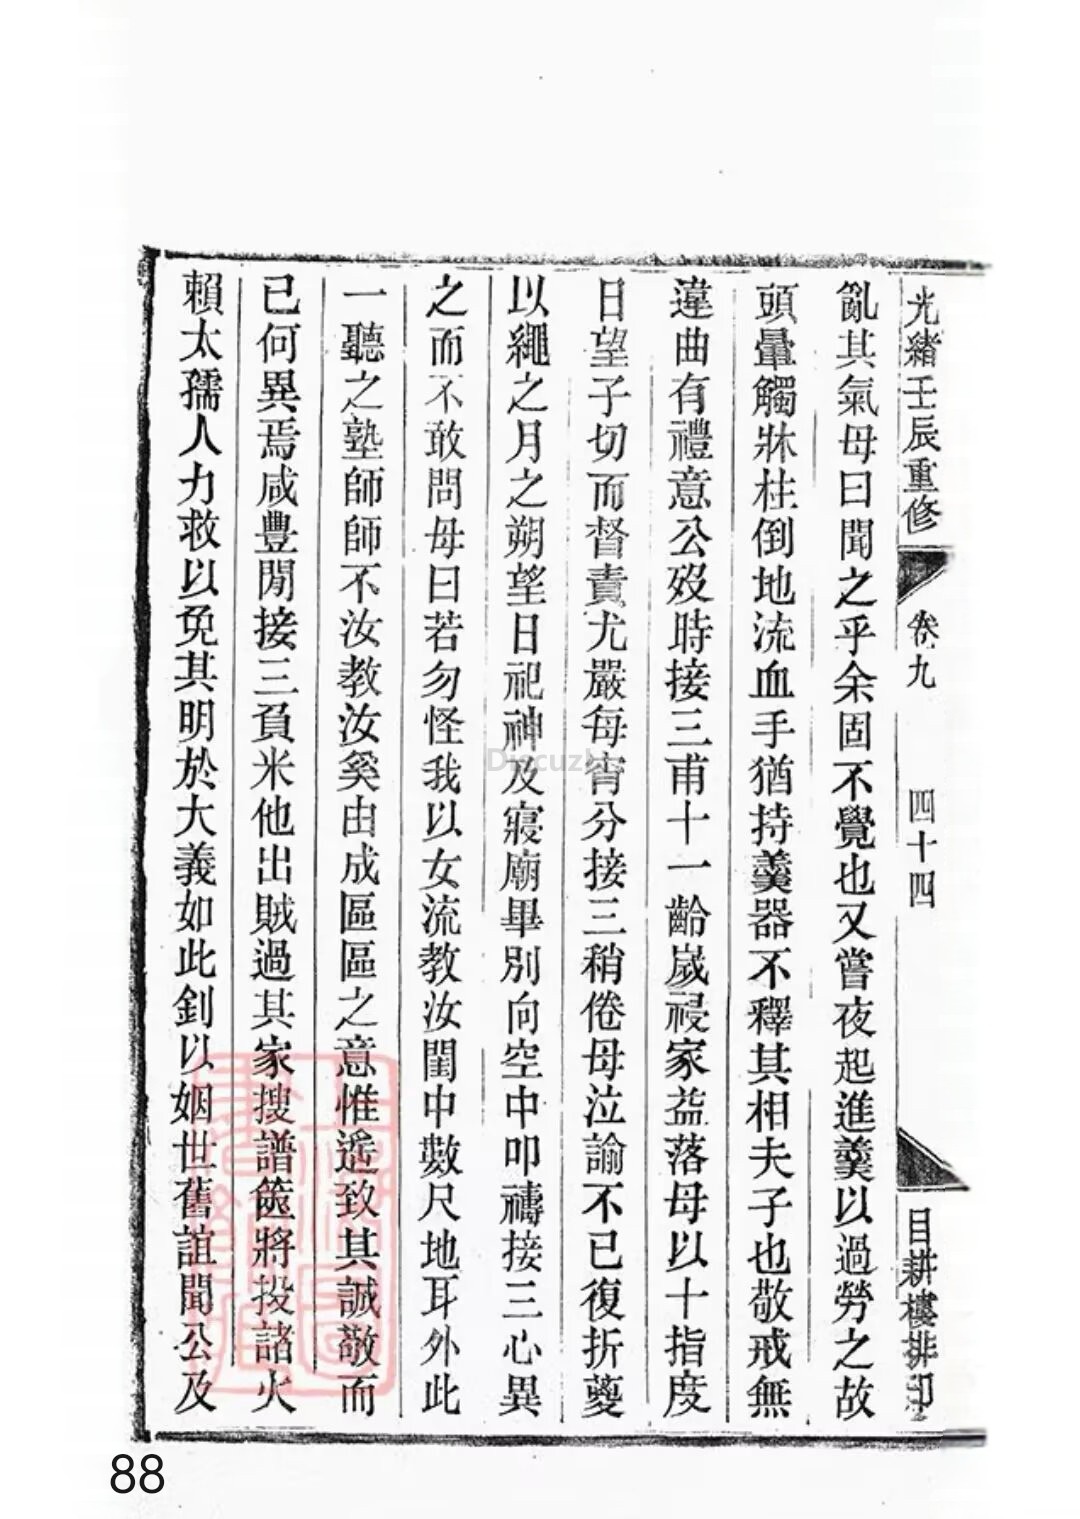 光緒壬辰重修
卷九
四十四
目耕樓排印
亂其氣母曰聞之乎余固不覺也又嘗夜起進羹以過勞之故
頭暈觸牀柱倒地流血手猶持羹器不釋其相夫子也敬戒無
違曲有禮意公歿時接三甫十一齡歲祲家益落母以十指度
日望子切而督責尤嚴每宵分接三稍倦母泣諭不已復折蔆
以繩之月之朔望日祀神及寢廟畢別向空中叩禱接三心異
之而不敢問母曰若勿怪我以女流教汝閨中數尺地耳外此
一聽之塾師師不汝教汝奚由成區區之意惟遥致其誠敬而
已何異焉咸豐閒接三負米他出賊過其家搜譜篋將投諸火
賴太孺人力救以免其明於大義如此釗以姻世舊誼聞公及
Discuz!
88